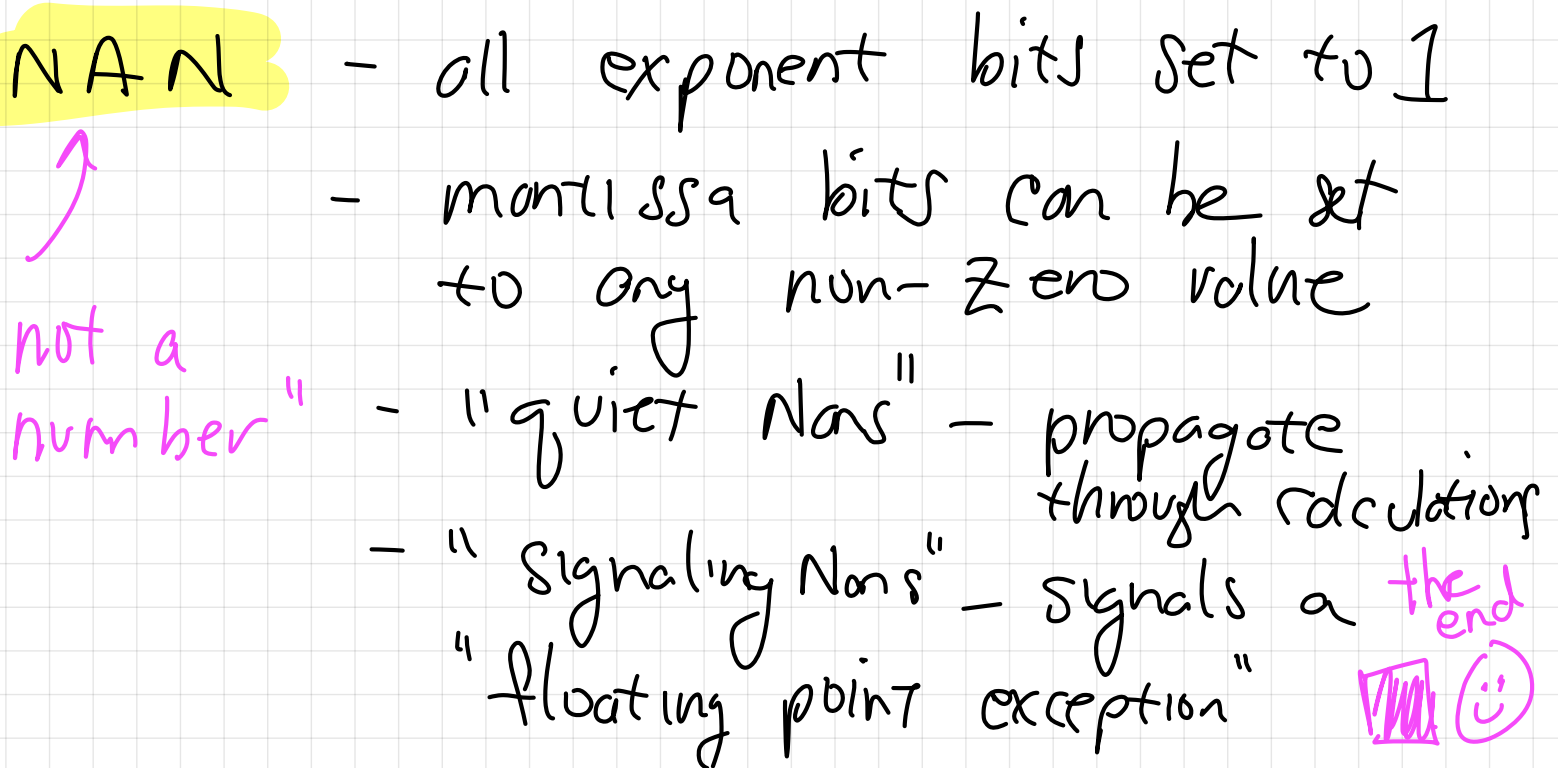 NAN - all exponent bits set to 1
- mantissa bits can be set
to any non-zero value
not a
number"
- "quiet Nans" - propagate
through calculations
- "signaling Nans" - signals a
"floating point exception"
the
end